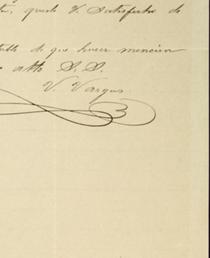 quede V. satisfecho de
de que hacer mencion
atto S. S.
V Vargas